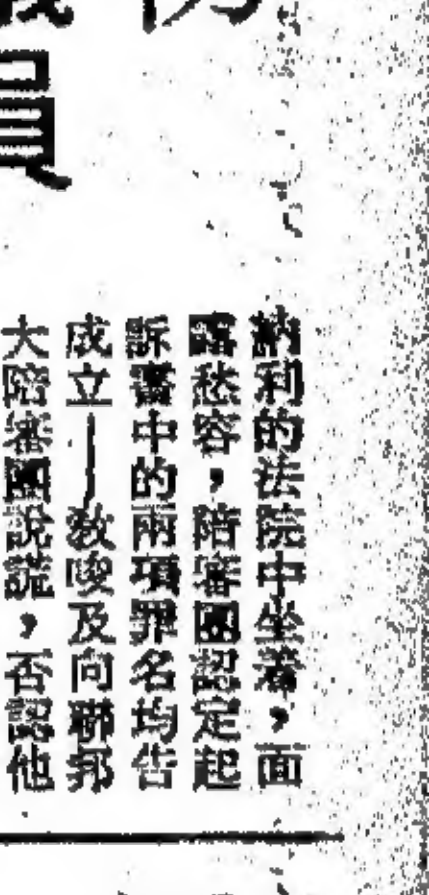 員
納利的法院中坐着，面
露愁容，陪審團認定起
訴書中的兩項罪名均告
成立——敎唆及向聯邦
大陪審團說謊，否認他